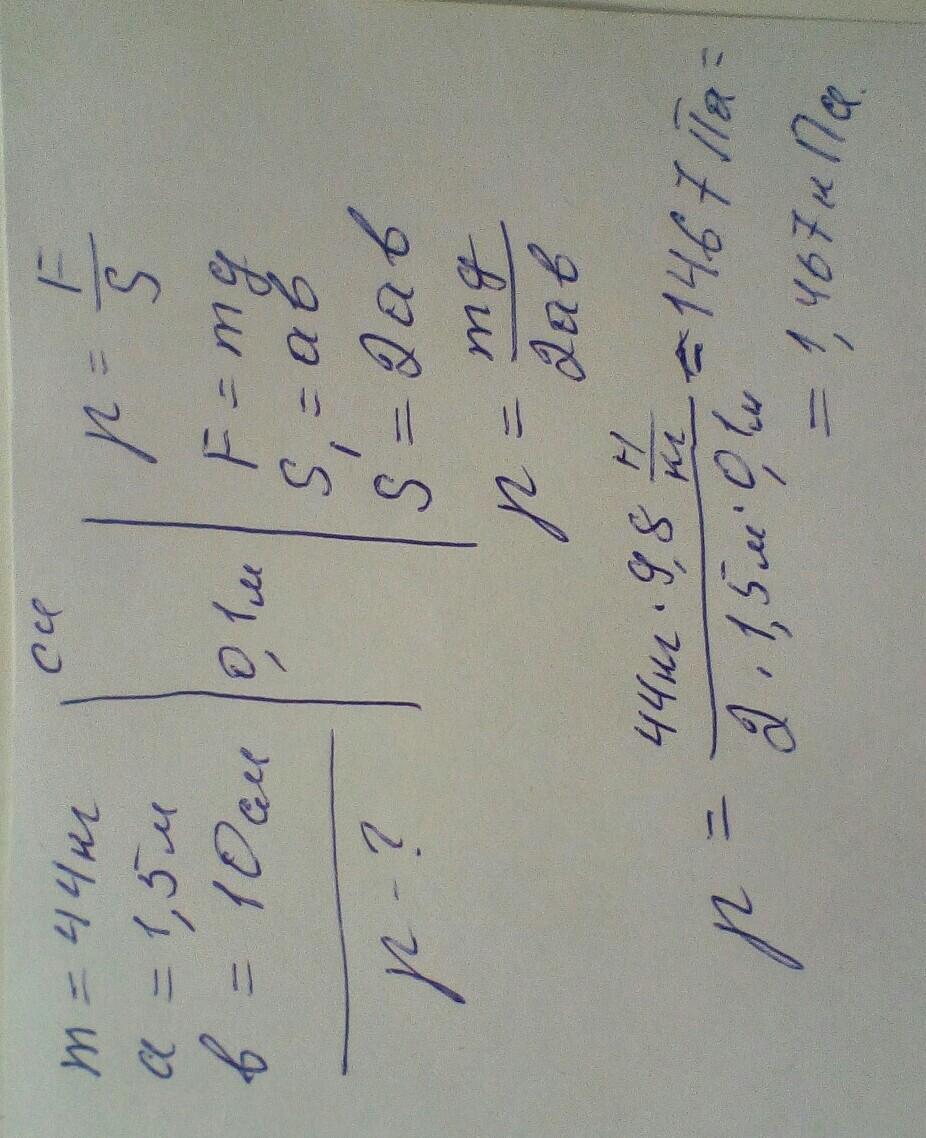 СИ
m = 44кг
a = 1,5м
в = 10см 0,1м
p - ?
p = F/S
F = mg
S₁ = aв
S = 2aв
p = mg/2aв
p = 44кг · 9,8 Н/кг / 2 · 1,5м · 0,1м = 1467 Па =
= 1,467 кПа.